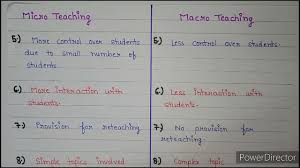 Micro Teaching
Macro Teaching
5) More control over students
due to small number of
students
5) Less control over students.
6) More interaction with
students.
6) Less interaction with
students.
7) Provision for reteaching
7) No provision for
reteaching
8) Simple topics involved
8) Complex topic
PowerDirector